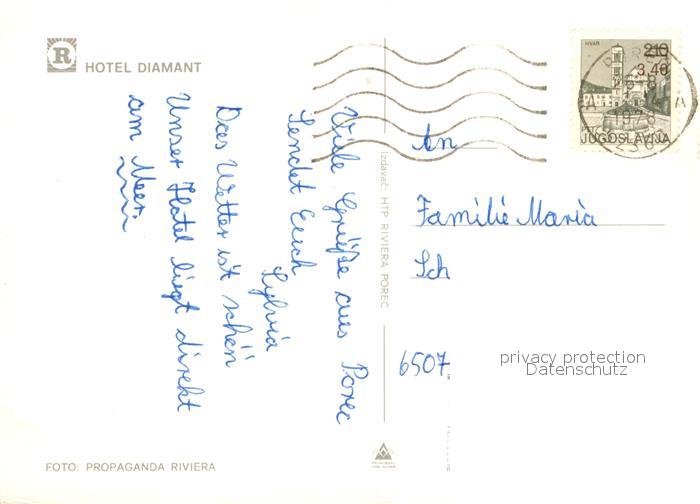 R
HOTEL DIAMANT
Viele Grüße aus Porec
Sendet Euch
Sylvia
Das Wetter ist schön
Unser Hotel liegt direkt
am Meer.
Izdavač: HTP RIVIERA POREČ
HVAR
210
3,40
JUGOSLAVIJA
An
Familie Maria
Sch
6507
privacy protection
Datenschutz
FOTO: PROPAGANDA RIVIERA